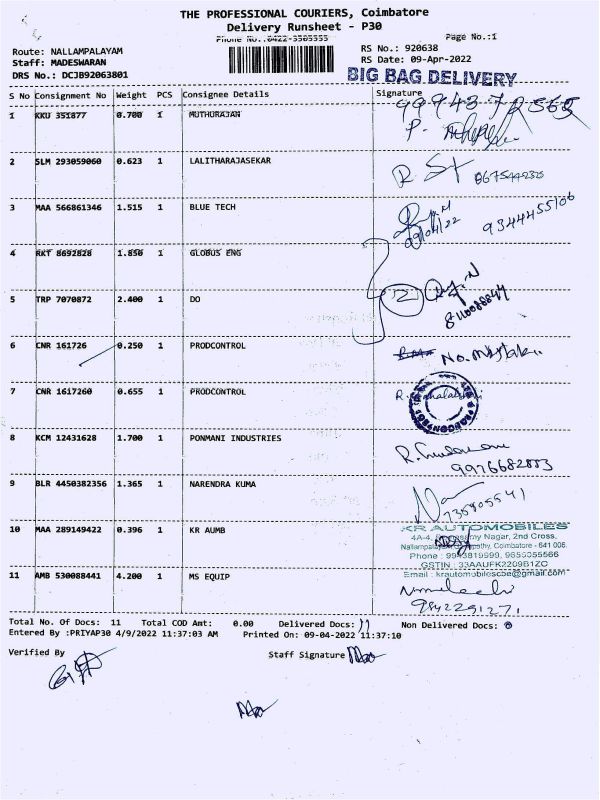 THE PROFESSIONAL COURIERS, Coimbatore
Delivery Runsheet - P30
Phone No.:0422-3505555
Page No.:1
Route: NALLAMPALAYAM
RS No.: 920638
Staff: MADESWARAN
RS Date: 09-Apr-2022
DRS No.: DCJB92063801
BIG BAG DELIVERY
S No Consignment No Weight PCS Consignee Details Signature
1 KKU 351877 0.700 1 MUTHURAJAN 9994372565
2 SLM 293059060 0.623 1 LALITHARAJASEKAR
3 MAA 566861346 1.515 1 BLUE TECH 09/04/22 9344455106
4 RKT 8692828 1.850 1 GLOBUS ENG
5 TRP 7070872 2.400 1 DO
6 CNR 161726 0.250 1 PRODCONTROL No.
7 CNR 1617260 0.655 1 PRODCONTROL
8 KCM 12431628 1.700 1 PONMANI INDUSTRIES
9 BLR 4450382356 1.365 1 NARENDRA KUMA
10 MAA 289149422 0.396 1 KR AUMB
KR AUTOMOBILES
4A-4, Nagar, 2nd Cross,
Coimbatore - 641 006.
Phone : 9943819999, 9655055666
GSTIN : 33AAUFK2209B1ZO
Email : krautomobilescbe@gmail.com
11 AMB 530088441 4.200 1 MS EQUIP
Total No. Of Docs: 11 Total COD Amt: 0.00 Delivered Docs: 11 Non Delivered Docs: 0
Entered By :PRIYAP30 4/9/2022 11:37:03 AM Printed On: 09-04-2022 11:37:10
Verified By Staff Signature